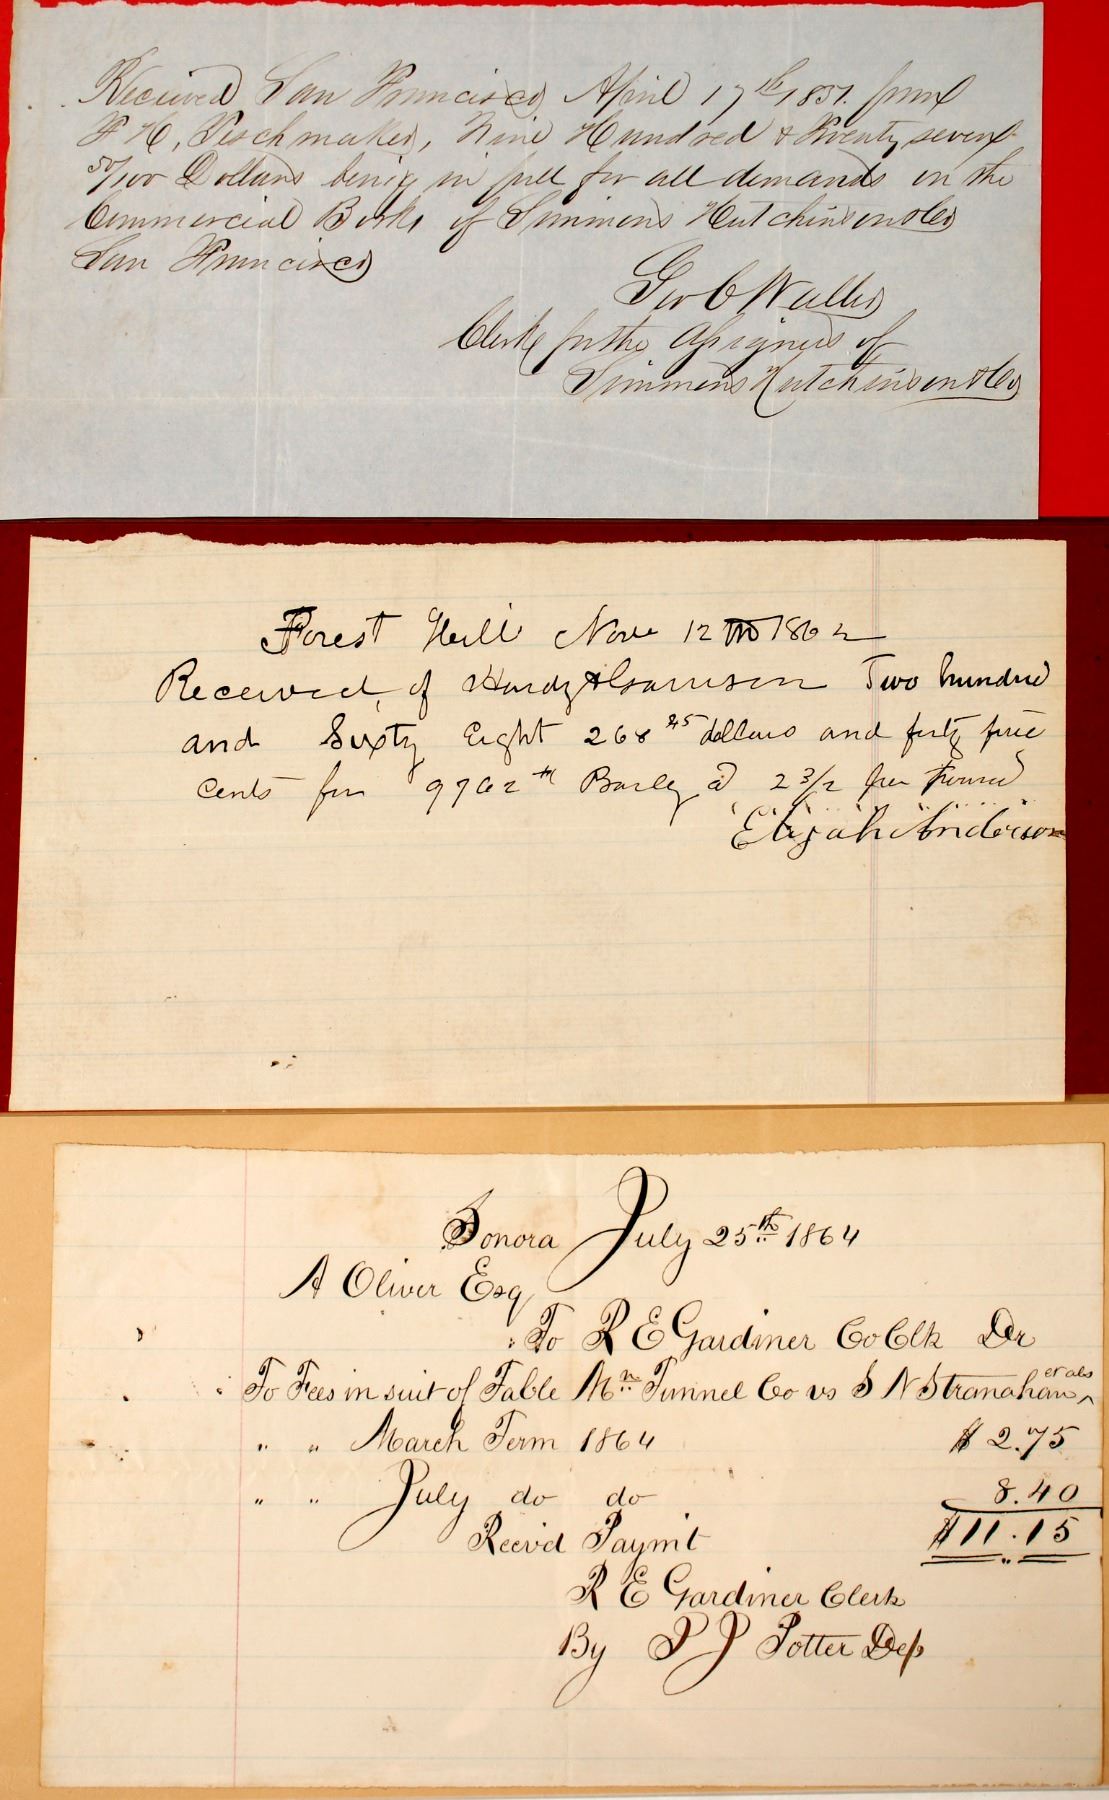 Received San Francisco April 17th 1851. from
F H, Teschmaker, Nine Hundred & Twenty seven
50/100 Dollars being in full for all demands on the
Commercial Books of Simmons Hutchinson & Co
San Francisco
Geo C Waller
Clerk for the Assignees of
Simmons Hutchinson & Co
Forest Hill Nov 12 th 1862
Received, of Hardy & Garrison Two hundred
and Sixty Eight 268 45 dollars and forty five
cents for 9762 Barley @ 2 3/2 per Pound
Elijah Anderson
Sonora July 25th 1864
A Oliver Esq
To R E Gardiner Co Clk Dr
To Fees in suit of Table Mn Tunnel Co vs S N Stranahan et als
" " March Term 1864 $ 2.75
" " July do do 8.40
Reev'd Paymt $11.15
R E Gardiner Clerk
By P J Potter Dep